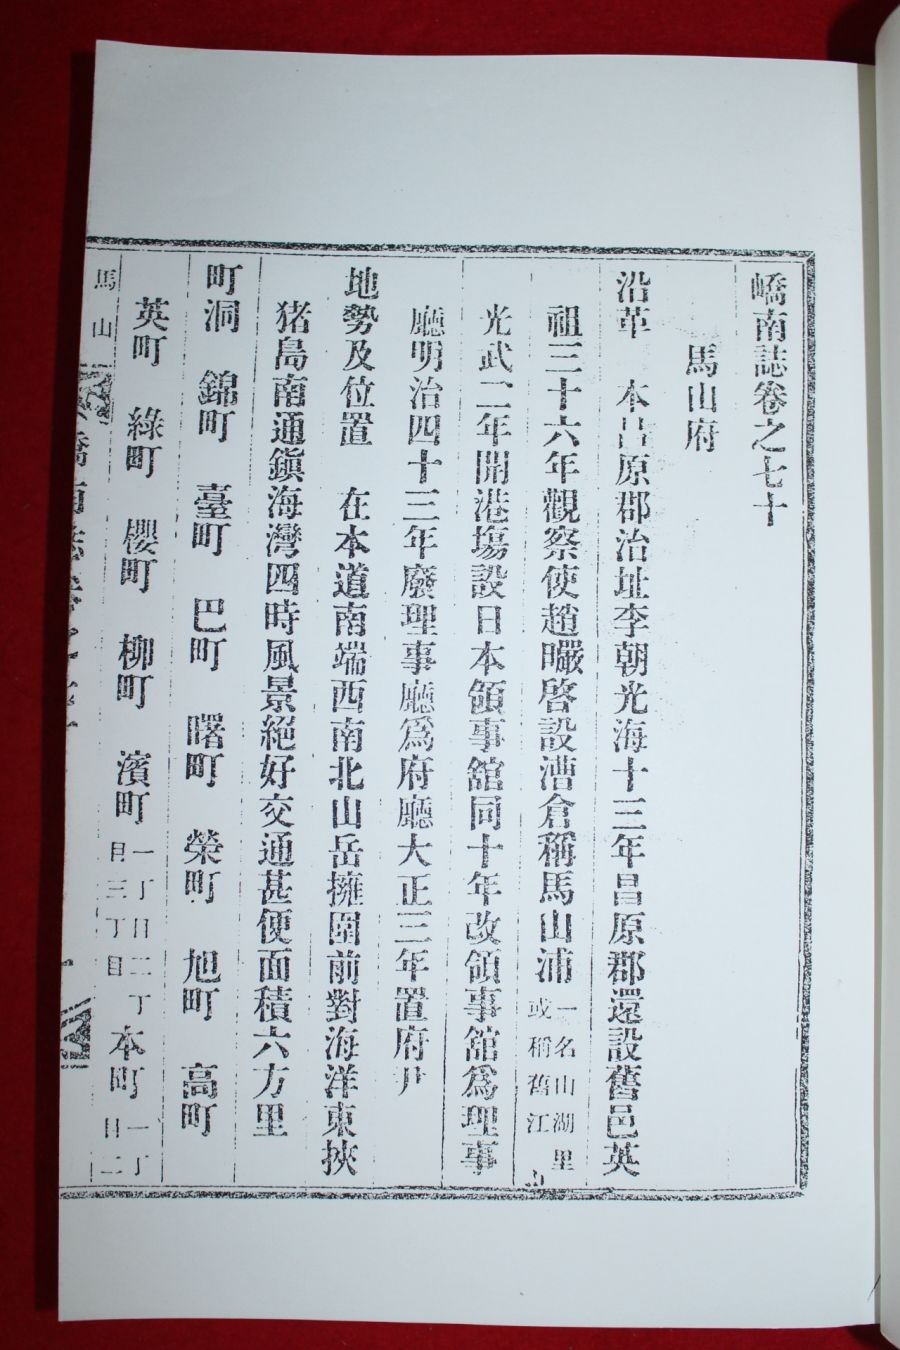 嶠南誌卷之七十
馬山府
沿革 本昌原郡治址李朝光海十三年昌原郡還設舊邑英
祖三十六年觀察使趙曮啓設漕倉稱馬山浦 一名山湖里 或稱舊江
光武二年開港塲設日本領事舘同十年改領事舘爲理事
廳明治四十三年廢理事廳爲府廳大正三年置府尹
地勢及位置 在本道南端西南北山岳擁圍前對海洋東挾
猪島南通鎭海灣四時風景絕好交通甚便面積六方里
町洞 錦町 臺町 巴町 曙町 榮町 旭町 高町
英町 綠町 櫻町 柳町 濱町 一丁目二丁目三丁目 本町 一丁目二
馬山